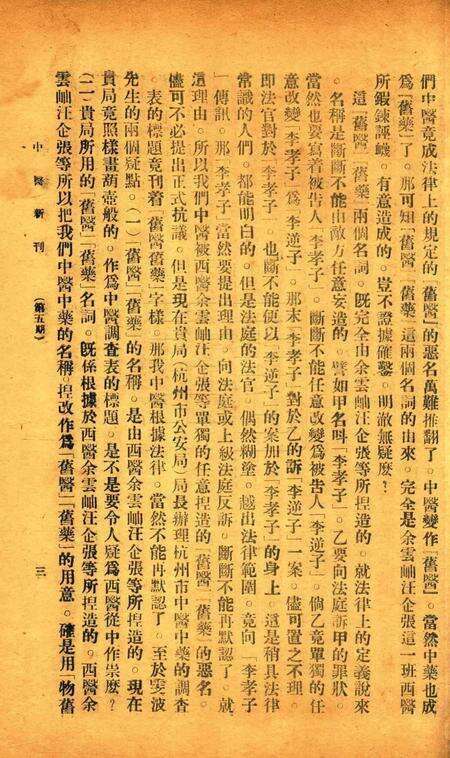 們中醫竟成法律上的規定的「舊醫」的惡名萬難推翻了。中醫變作「舊醫」。當然中藥也成
爲「舊藥」了。那可知「舊醫」「舊藥」這兩個名詞的由來。完全是余雲岫汪企張這一班西醫
所鍛鍊誣衊。有意造成的。豈不證據確鑿。明澈無疑麼?
這「舊醫」「舊藥」兩個名詞。旣完全由余雲岫汪企張等所捏造的。就法律上的定義說來
。名稱是斷斷不能由敵方任意妄造的。譬如甲名叫「李孝子」。乙要向法庭訴甲的罪狀。
當然也要寫着被告人「李孝子」。斷斷不能任意改變爲被告人「李逆子」。倘乙竟單獨的任
意改變「李孝子」爲「李逆子」。那末「李孝子」對於乙的訴「李逆子」一案。儘可置之不理。
即法官對於「李孝子」。也斷不能便以「李逆子」的案加於「李孝子」的身上。這是稍具法律
常識的人們。都能明白的。但是法庭的法官。偶然糊塗。越出法律範圍。竟向「李孝子
」傳訊。那「李孝子」當然要提出理由。向法庭或上級法庭反訴。斷斷不能再默認了。就
這理由。所以我們中醫被西醫余雲岫汪企張等單獨的任意捏造的「舊醫」「舊藥」的惡名。
儘可不必提出正式抗議。但是現在貴局(杭州市公安局)局長辦理杭州市中醫中藥的調查
。表的標題竟刊着「舊醫舊藥」字樣。那我中醫根據法律。當然不能再默認了。至於雯波
先生的兩個疑點。(一)「舊醫」「舊藥」的名稱。是由西醫余雲岫汪企張等所捏造的。現在
貴局竟照樣畫葫壺般的。作爲中醫調查表的標題。是不是要令人疑爲西醫從中作祟麼?
(二)貴局所用的「舊醫」「舊藥」名詞。旣係根據於西醫余雲岫汪企張等所捏造的。西醫余
雲岫汪企張等所以把我們中醫中藥的名稱。捏改作爲「舊醫」「舊藥」的用意。確是用「物舊
中醫新刊 (第五期) 三